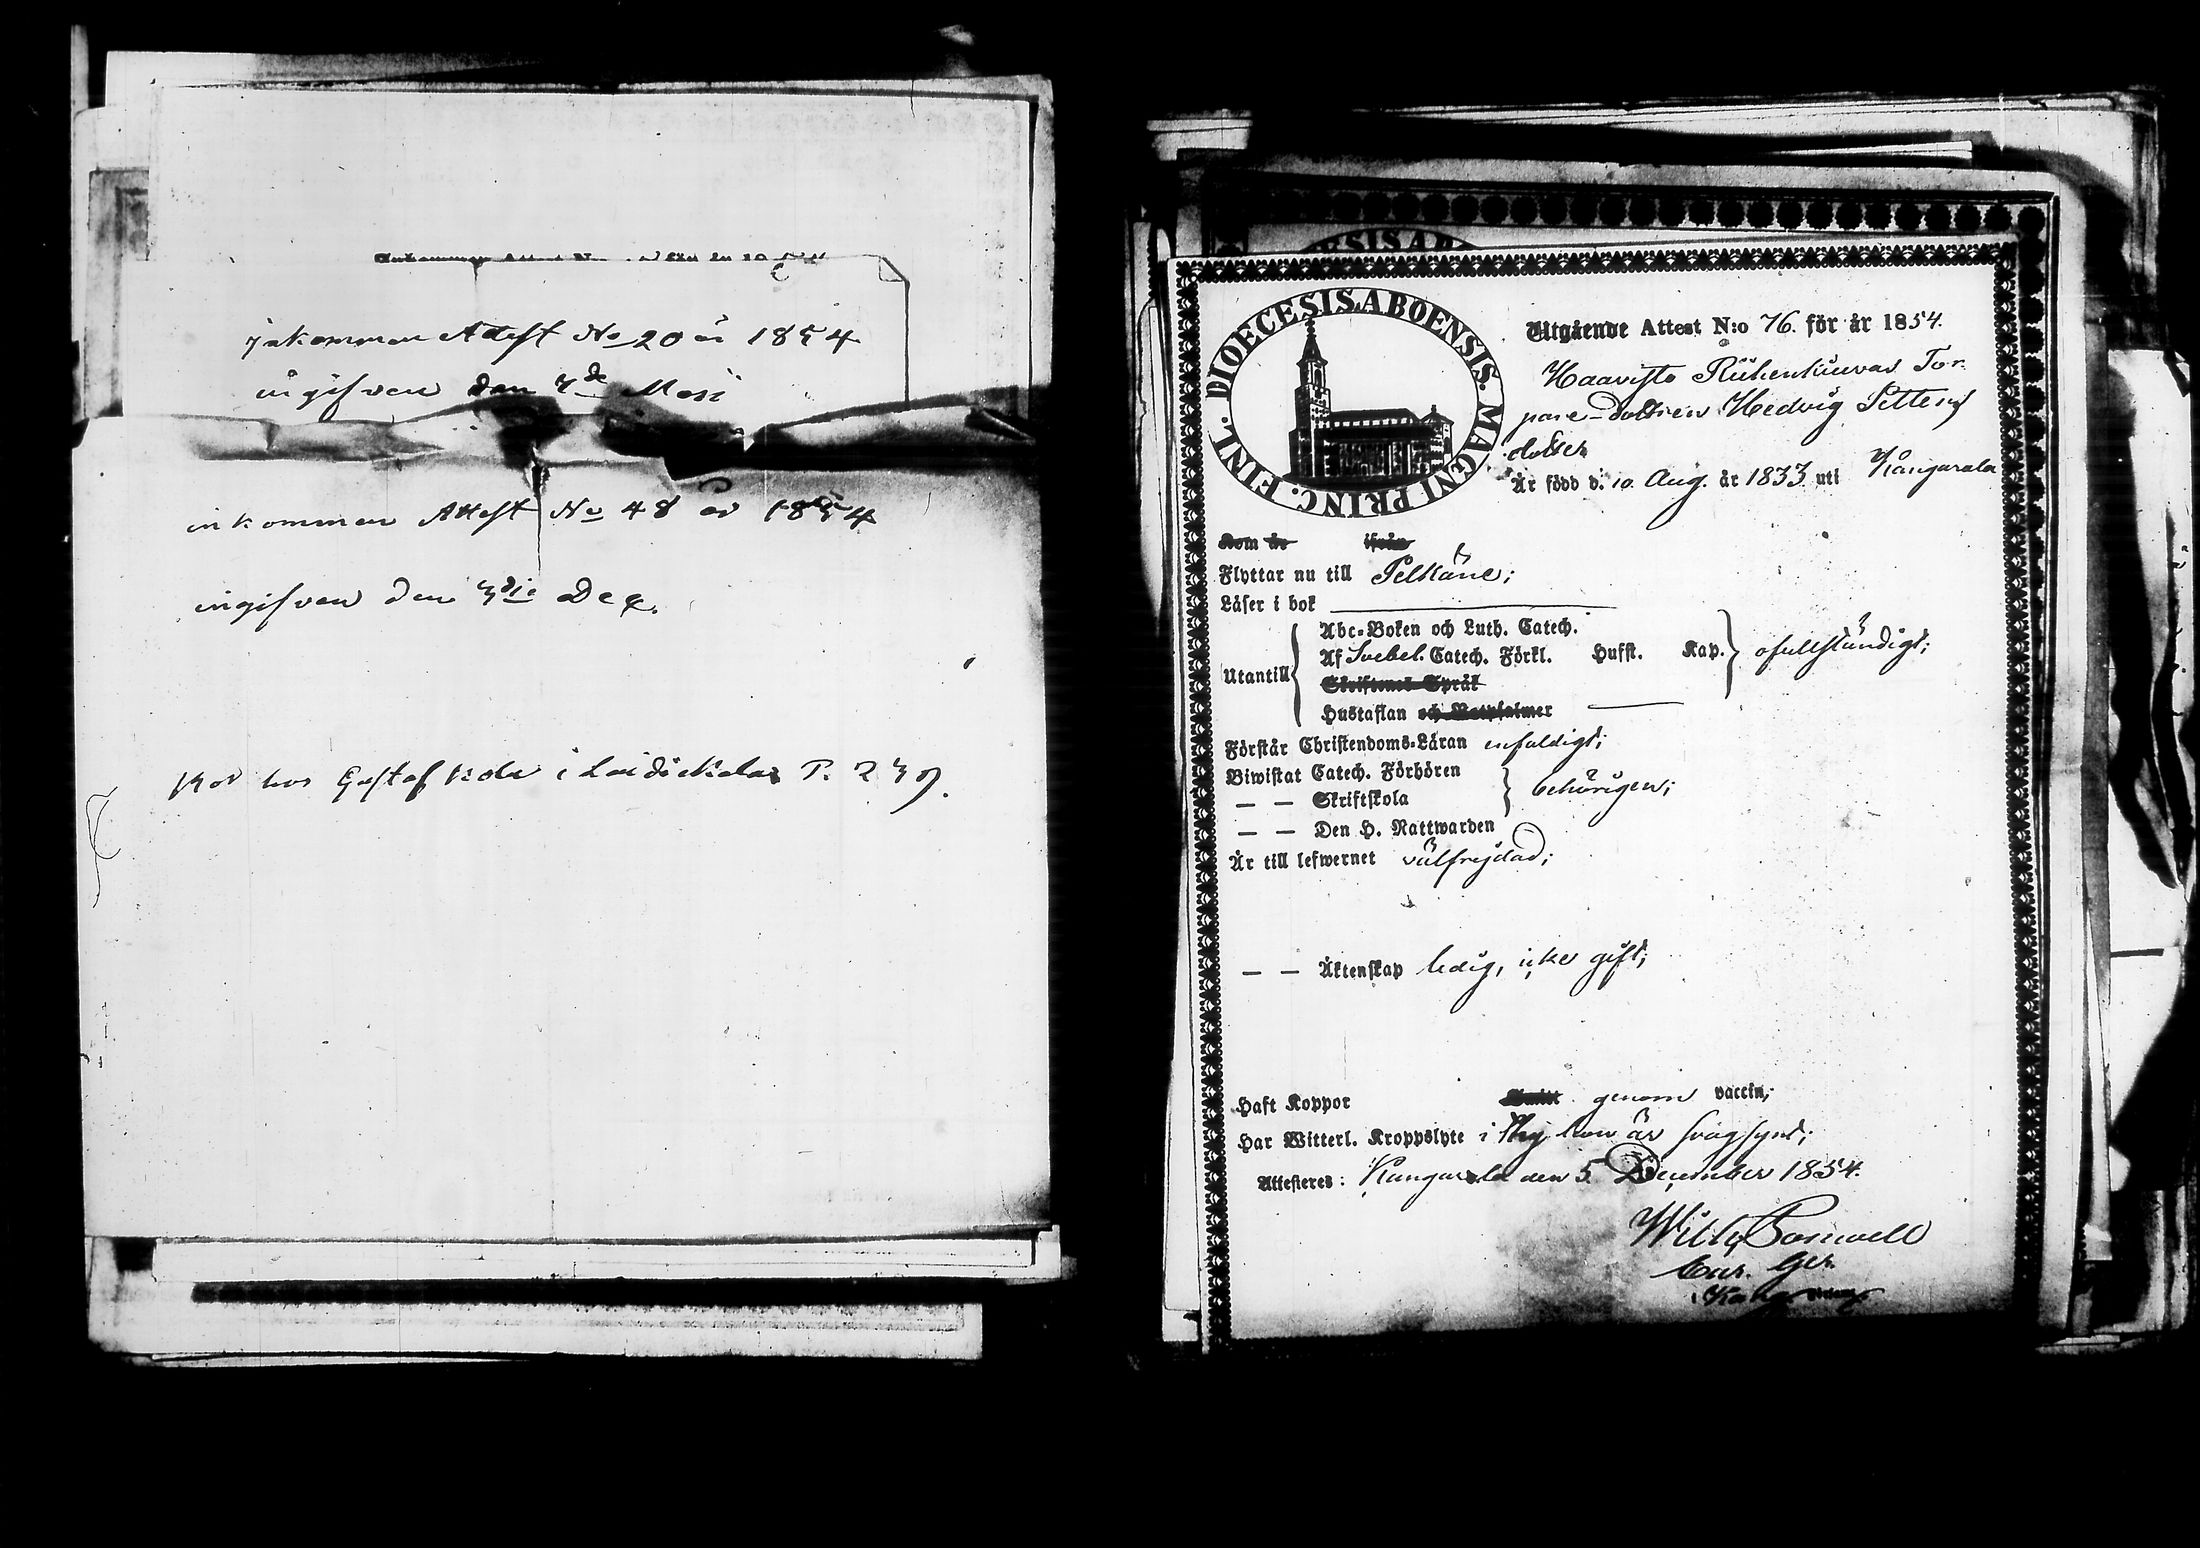 inkommen Attest No 20 år 1854
ingifven den 7de Maji
inkommen Attest No 48 år 1854
ingifven den 3die Dec.
hos Gustaf i P. 239.
DIOECESIS ABOENSIS. MAGNI PRINC. FINL.
Utgående Attest N:o 76. för år 1854.
Haavisto Tor-
pare-dottren Hedvig Petters
dotter
Är född d. 10 Aug. år 1833 uti Kangasala
Kom år ifrån
Flyttar nu till Pelkäne;
Läser i bok
Utantill
Abc-Boken och Luth. Catech.
Af Svebel. Catech. Förkl. Husst. Kap. ofullständigt;
Skriftenes Språk
Hustaflan och Nattpsalmer
Förstår Christendoms-Läran enfaldigt;
Biwistat Catech. Förhören
— — Skriftskola behörigen;
— — Den H. Nattwarden
Är till lefwernet välfrejdad;
— — Äktenskap ledig, icke gift;
Haft Koppor genom vaccin;
Har Witterl. Kroppslyte i hon är svagsynt;
Attesteres: Kangasala den 5 December 1854.